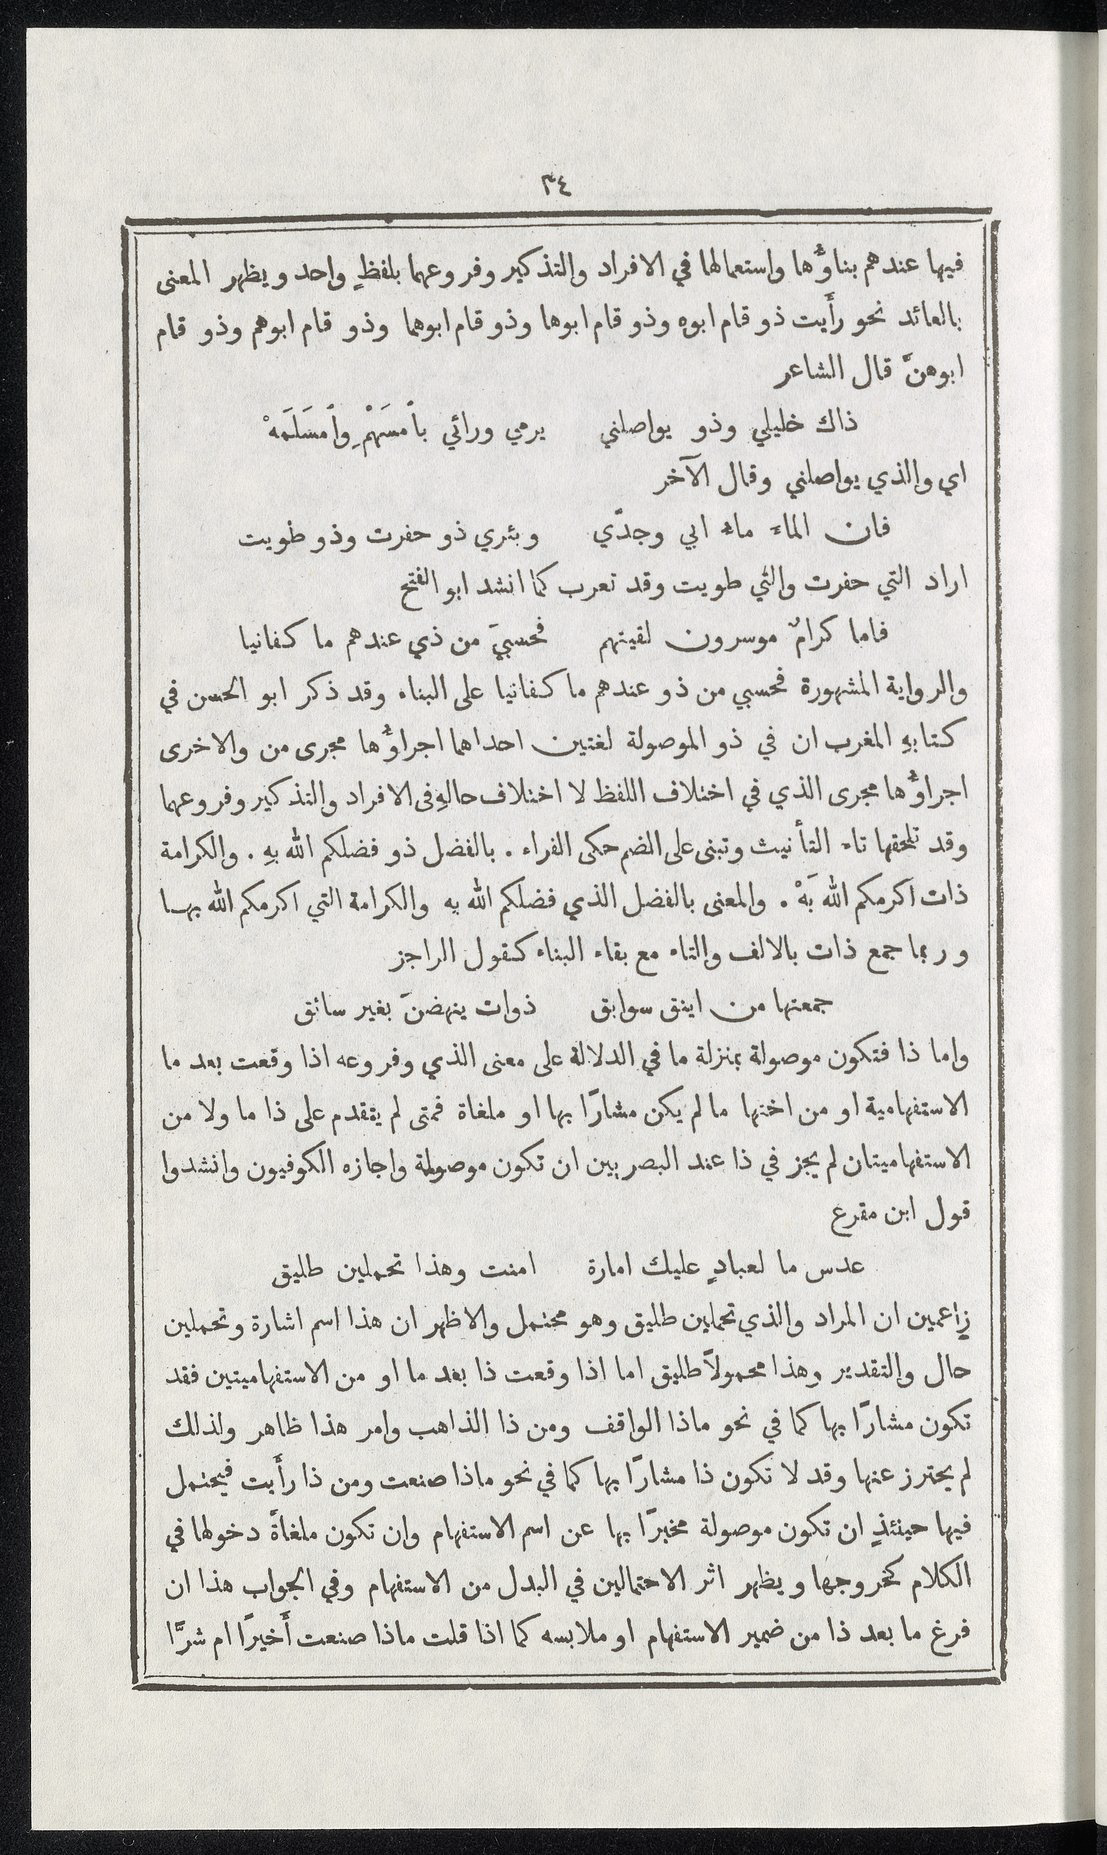 ٣٤
فيها عندهم بناؤُها واستعمالها في الافراد والتذكير وفروعهما بلفظٍ واحد ويظهر المعنى
بالعائد نحو رأَيت ذو قام ابوه وذو قام ابوها وذو قام ابوهما وذو قام ابوهم وذو قام
ابوهنَّ قال الشاعر
ذاك خليلي وذو يواصلني يرمي ورائي بأمسَهْمِ وأمسَلَمهْ
اي والذي يواصلني وقال الآخر
فان الماءَ ماءُ ابي وجدّي وبئري ذو حفرت وذو طويت
اراد التي حفرت والتي طويت وقد تعرب كما انشد ابو الفتح
فاما كرامٌ موسرون لقيتهم فحسبيَ من ذي عندهم ما كفانيا
والرواية المشهورة فحسبي من ذو عندهم ما كفانيا على البناء وقد ذكر ابو الحسن في
كتابهِ المغرب ان في ذو الموصولة لغتين احداهما اجراؤُها مجرى من والاخرى
اجراؤُها مجرى الذي في اختلاف اللفظ لا اختلاف حالهِ فى الافراد والتذكير وفروعهما
وقد تلحقها تاء التأنيث وتبنى على الضم حكى الفراء . بالفضل ذو فضلكم الله بهِ . والكرامة
ذات اكرمكم الله بَهْ . والمعنى بالفضل الذي فضلكم الله به والكرامة التي اكرمكم الله بها
وربما جمع ذات بالالف والتاء مع بقاء البناء كقول الراجز
جمعتها من اينق سوابق ذوات ينهضنَ بغير سائق
واما ذا فتكون موصولة بمنزلة ما في الدلالة على معنى الذي وفروعه اذا وقعت بعد ما
الاستفهامية او من اختها ما لم يكن مشارًا بها او ملغاة فمتى لم يتقدم على ذا ما ولا من
الاستفهاميتان لم يجز في ذا عند البصريين ان تكون موصولة واجازه الكوفيون وانشدوا
قول ابن مقرع
عدس ما لعبادٍ عليك امارة امنت وهذا تحملين طليق
زاعمين ان المراد والذي تحملين طليق وهو محتمل والاظهر ان هذا اسم اشارة وتحملين
حال والتقدير وهذا محمولاً طليق اما اذا وقعت ذا بعد ما او من الاستفهاميتين فقد
تكون مشارًا بها كما في نحو ماذا الواقف ومن ذا الذاهب وامر هذا ظاهر ولذلك
لم يحترز عنها وقد لا تكون ذا مشارًا بها كما في نحو ماذا صنعت ومن ذا رأَيت فيحتمل
فيها حينئذٍ ان تكون موصولة مخبرًا بها عن اسم الاستفهام وان تكون ملغاةً دخولها في
الكلام كخروجها ويظهر اثر الاحتمالين في البدل من الاستفهام وفي الجواب هذا ان
فرغ ما بعد ذا من ضمير الاستفهام او ملابسه كما اذا قلت ماذا صنعت أَخيرًا ام شرًّا